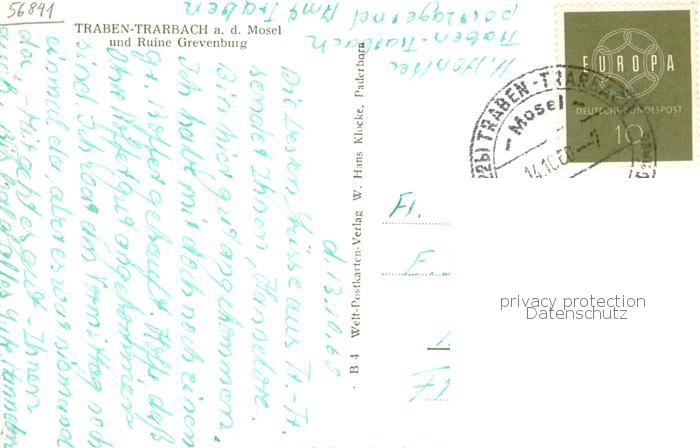 56841
TRABEN-TRARBACH a. d. Mosel
und Ruine Grevenburg
postlagernd Amt Traben
Traben-Trarbach
EUROPA
DEUTSCHE BUNDESPOST
10
(22b) TRABEN-TRARBACH
- Mosel -
14.10.60
d. 13.10.60
Die besten Grüsse aus Tr.-Tr.
sendet Ihnen, Hannelore.
Bin hier gut angekommen.
Ich habe mir doch noch einen
gr. Koffer gekauft. Hoffe daß
Ihre Koffer gut angekommen
sind. Ich war am Vormittag noch
einmal da aber es war niemand
da.
B 4 Welt-Postkarten-Verlag W. Hans Klocke, Paderborn
Fr.
F
privacy protection
Datenschutz